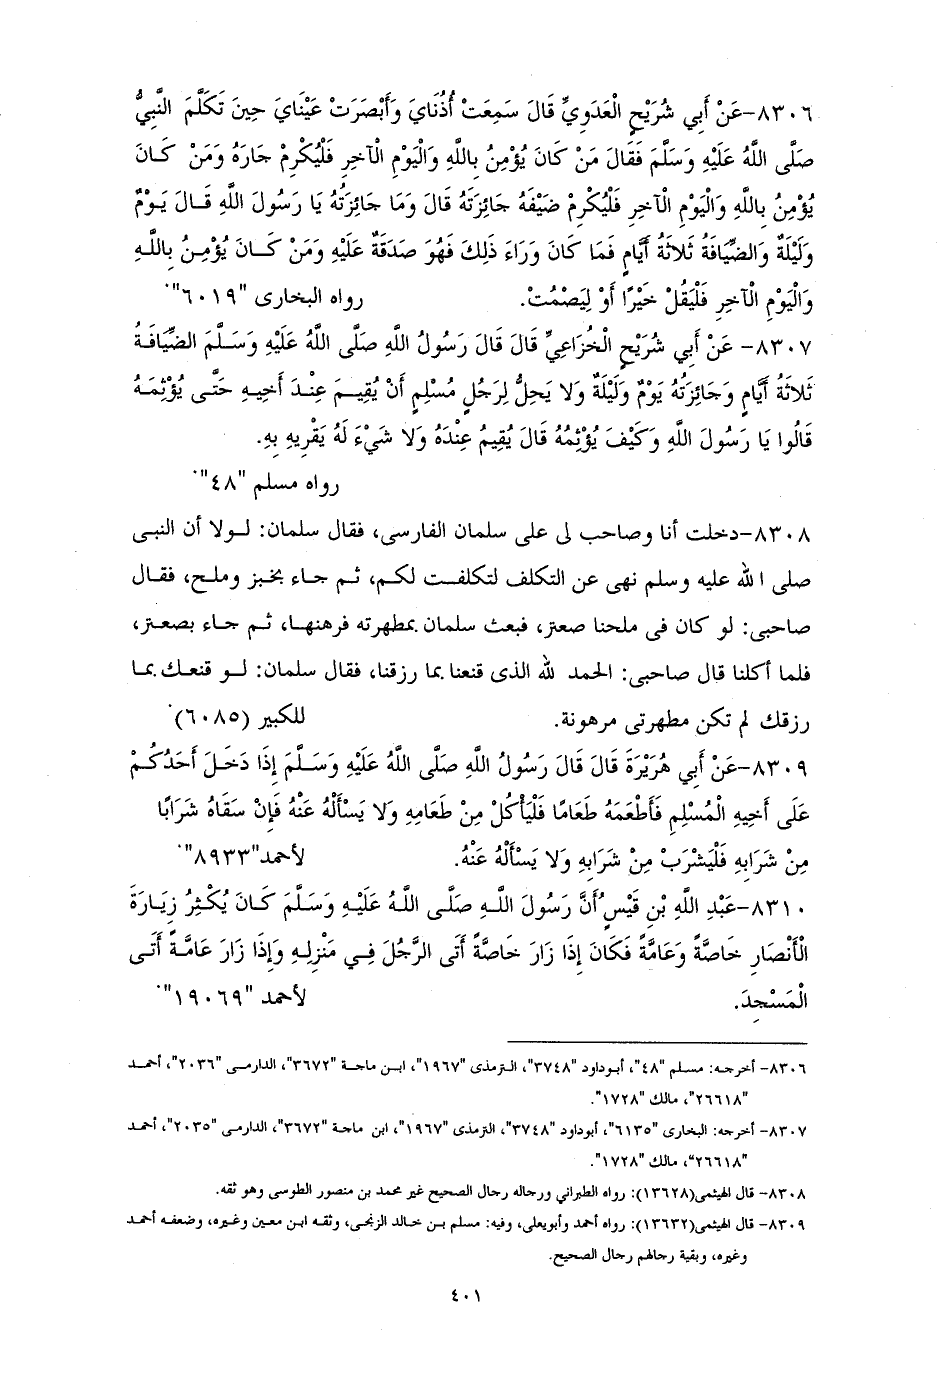 ٨٣٠٦-عَنْ أَبِي شُرَيْحٍ الْعَدَوِيِّ قَالَ سَمِعَتْ أُذُنَايَ وَأَبْصَرَتْ عَيْنَايَ حِينَ تَكَلَّمَ النَّبِيُّ
صَلَّى اللَّهُ عَلَيْهِ وَسَلَّمَ فَقَالَ مَنْ كَانَ يُؤْمِنُ بِاللَّهِ وَالْيَوْمِ الْآخِرِ فَلْيُكْرِمْ جَارَهُ وَمَنْ كَانَ
يُؤْمِنُ بِاللَّهِ وَالْيَوْمِ الْآخِرِ فَلْيُكْرِمْ ضَيْفَهُ جَائِزَتَهُ قَالَ وَمَا جَائِزَتُهُ يَا رَسُولَ اللَّهِ قَالَ يَوْمٌ
وَلَيْلَةٌ وَالضِّيَافَةُ ثَلَاثَةُ أَيَّامٍ فَمَا كَانَ وَرَاءَ ذَلِكَ فَهُوَ صَدَقَةٌ عَلَيْهِ وَمَنْ كَانَ يُؤْمِنُ بِاللَّهِ
وَالْيَوْمِ الْآخِرِ فَلْيَقُلْ خَيْرًا أَوْ لِيَصْمُتْ. رواه البخارى "٦٠١٩".
٨٣٠٧- عَنْ أَبِي شُرَيْحٍ الْخُزَاعِيِّ قَالَ قَالَ رَسُولُ اللَّهِ صَلَّى اللَّهُ عَلَيْهِ وَسَلَّمَ الضِّيَافَةُ
ثَلَاثَةُ أَيَّامٍ وَجَائِزَتُهُ يَوْمٌ وَلَيْلَةٌ وَلَا يَحِلُّ لِرَجُلٍ مُسْلِمٍ أَنْ يُقِيمَ عِنْدَ أَخِيهِ حَتَّى يُؤْثِمَهُ
قَالُوا يَا رَسُولَ اللَّهِ وَكَيْفَ يُؤْثِمُهُ قَالَ يُقِيمُ عِنْدَهُ وَلَا شَيْءَ لَهُ يَقْرِيهِ بِهِ.
رواه مسلم "٤٨".
٨٣٠٨-دخلت أنا وصاحب لى على سلمان الفارسى، فقال سلمان: لولا أن النبى
صلى الله عليه وسلم نهى عن التكلف لتكلفت لكم، ثم جاء بخبز وملح، فقال
صاحبى: لو كان فى ملحنا صعتر، فبعث سلمان بمطهرته فرهنها، ثم جاء بصعتر،
فلما أكلنا قال صاحبى: الحمد لله الذى قنعنا بما رزقنا، فقال سلمان: لو قنعك بما
رزقك لم تكن مطهرتى مرهونة. للكبير (٦٠٨٥).
٨٣٠٩-عَنْ أَبِي هُرَيْرَةَ قَالَ قَالَ رَسُولُ اللَّهِ صَلَّى اللَّهُ عَلَيْهِ وَسَلَّمَ إِذَا دَخَلَ أَحَدُكُمْ
عَلَى أَخِيهِ الْمُسْلِمِ فَأَطْعَمَهُ طَعَامًا فَلْيَأْكُلْ مِنْ طَعَامِهِ وَلَا يَسْأَلْهُ عَنْهُ فَإِنْ سَقَاهُ شَرَابًا
مِنْ شَرَابِهِ فَلْيَشْرَبْ مِنْ شَرَابِهِ وَلَا يَسْأَلْهُ عَنْهُ. لأحمد"٨٩٣٣".
٨٣١٠-عَبْدِ اللَّهِ بْنِ قَيْسٍ أَنَّ رَسُولَ اللَّهِ صَلَّى اللَّهُ عَلَيْهِ وَسَلَّمَ كَانَ يُكْثِرُ زِيَارَةَ
الْأَنْصَارِ خَاصَّةً وَعَامَّةً فَكَانَ إِذَا زَارَ خَاصَّةً أَتَى الرَّجُلَ فِي مَنْزِلِهِ وَإِذَا زَارَ عَامَّةً أَتَى
الْمَسْجِدَ. لأحمد "١٩٠٦٩".
٨٣٠٦- أخرجه: مسلم "٤٨"، أبوداود "٣٧٤٨"، الترمذى "١٩٦٧"، ابن ماجة "٣٦٧٢"، الدارمى "٢٠٣٦"، أحمد
"٢٦٦١٨"، مالك "١٧٢٨".
٨٣٠٧- أخرجه: البخارى "٦١٣٥"، أبوداود "٣٧٤٨"، الترمذى "١٩٦٧"، ابن ماجة "٣٦٧٢"، الدارمى "٢٠٣٥"، أحمد
"٢٦٦١٨"، مالك "١٧٢٨".
٨٣٠٨- قال الهيثمى(١٣٦٢٨): رواه الطبراني ورجاله رجال الصحيح غير محمد بن منصور الطوسى وهو ثقه.
٨٣٠٩- قال الهيثمى(١٣٦٣٢): رواه أحمد وأبويعلى، وفيه: مسلم بن خالد الزنجى، وثقه ابن معين وغيره، وضعفه أحمد
وغيره، وبقية رجالهم رجال الصحيح.
٤٠١